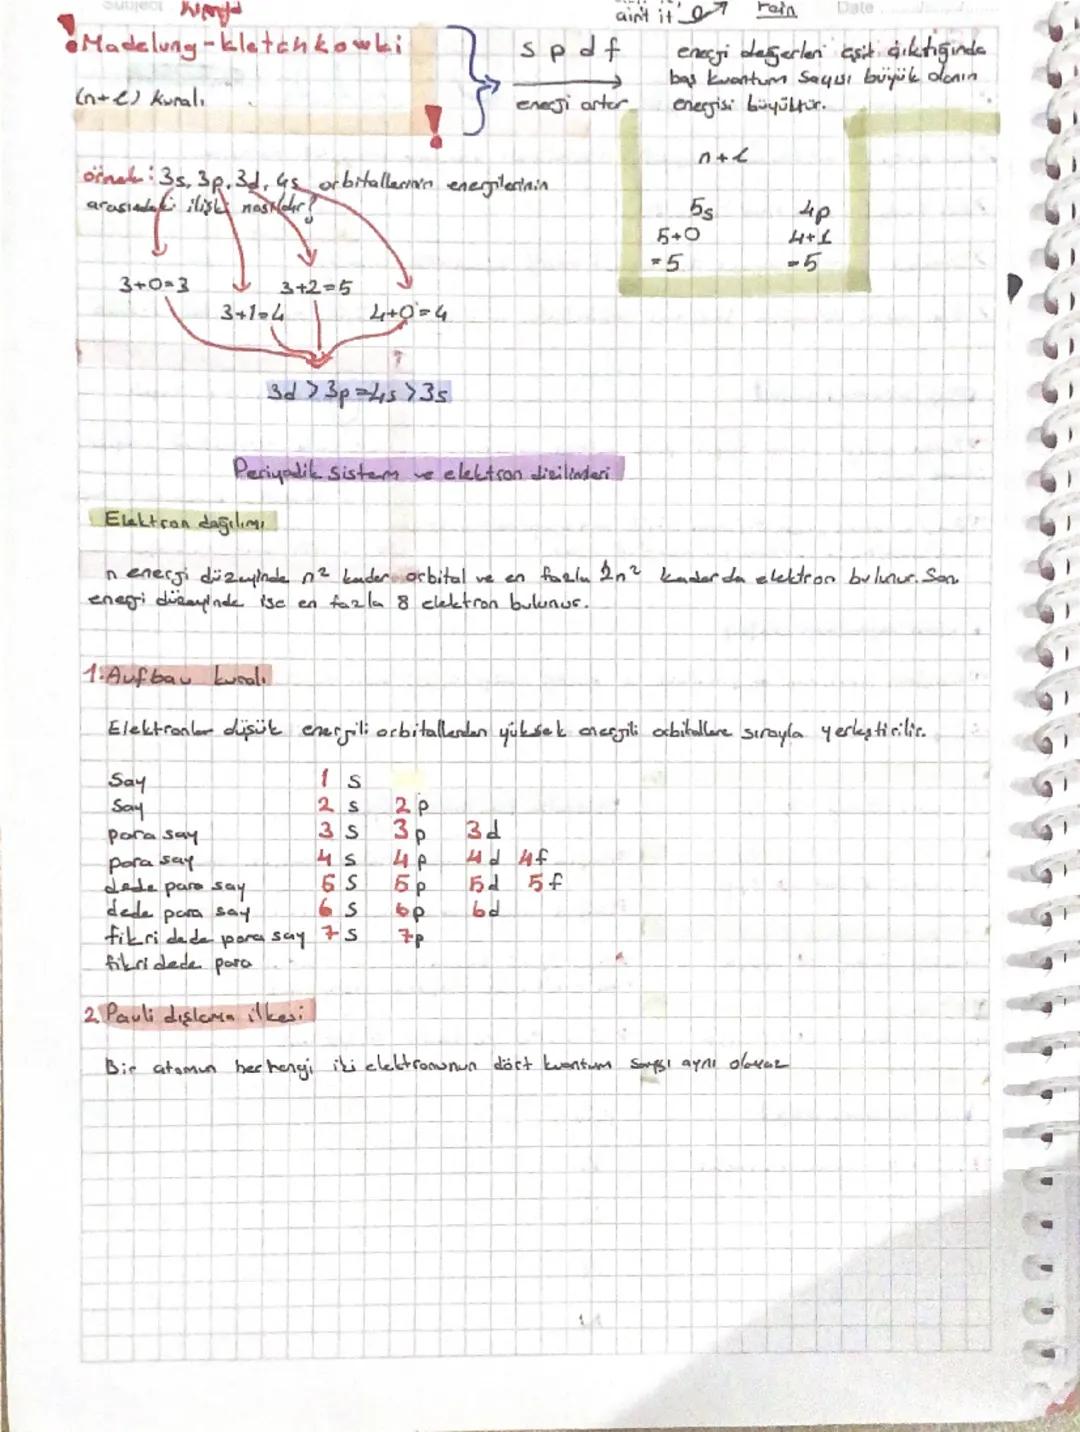 Subject
ain't it
rain
Date
! Madelung-kletchkowki
(n+l) kuralı
!
s p d f
enerji artar
enerji değerleri eşit çıktığında
baş kuantum sayısı büyük olanın
enerjisi büyüktür.
n+l
5s 4p
5+0 4+1
=5 =5
örnek: 3s, 3p, 3d, 4s orbitallerinin enerjilerinin
arasındaki ilişki nasıldır?
3+0=3 3+2=5
3+1=4 4+0=4
?
3d > 3p = 4s > 3s
Periyodik sistem ve elektron dizilimleri
Elektron dağılımı
n enerji düzeyinde n² kadar orbital ve en fazla 2n² kadar da elektron bulunur. Son
enerji düzeyinde ise en fazla 8 elektron bulunur.
1. Aufbau kuralı
Elektronlar düşük enerjili orbitallerden yüksek enerjili orbitallere sırayla yerleştirilir.
Say 1 s
Say 2 s 2p
para say 3 s 3p 3d
para say 4 s 4p 4d 4f
dede para say 5 s 5p 5d 5f
dede para say 6 s 6p 6d
fikri dede para say 7 s 7p
fikri dede para
2. Pauli dışlama ilkesi
Bir atomun herhangi iki elektronunun dört kuantum sayısı aynı olamaz